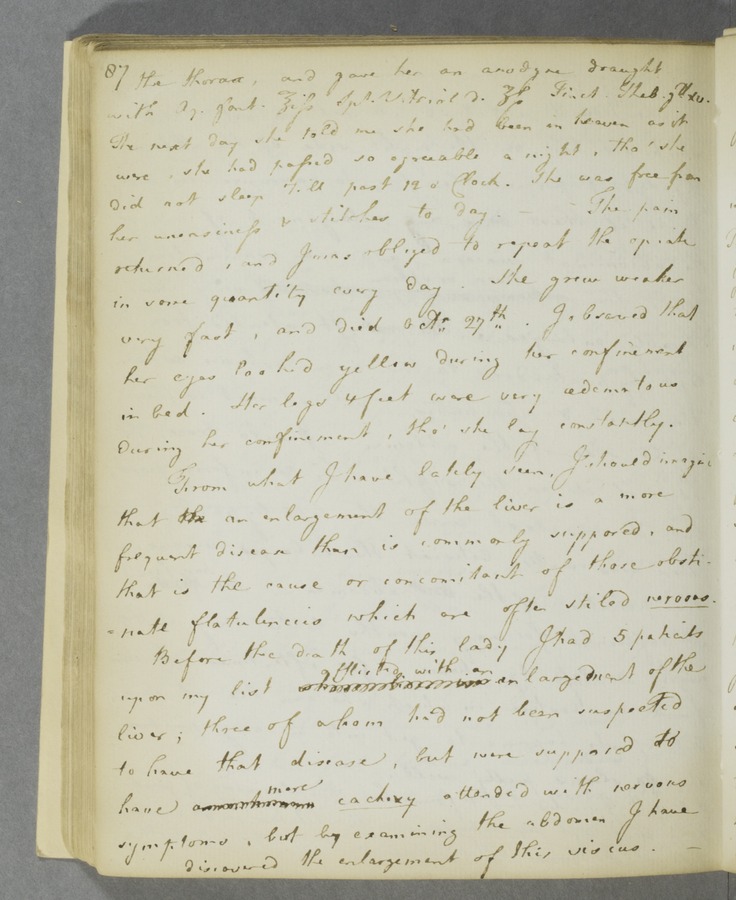 87 the thorax, and gave her an anodyne draught
with Aq. font. ℥iſs Spt. Vitriol d. ʒſs Tinct. Theb. gtt xv.
The next day she told me she had been in heaven as it
were, she had passed so agreeable a night, tho' she
did not sleep till past 12 o'Clock. She was free from
her uneasiness & stitches to day. — — The pain
returned, and I was obliged to repeat the opiate
in some quantity every day. She grew weaker
very fast, and died Octr. 27th. I observed that
her eyes looked yellow during her confinement
in bed. Her legs & feet were very œdematous
during her confinement, tho' she lay constantly.
From what I have lately seen, I should imagine
that the an enlargement of the liver is a more
frequent disease than is commonly supposed, and
that is the cause or concomitant of those obsti-
-nate flatulencies which are often stiled nervous.
Before the death of this lady I had 5 patients
upon my list afflicted with an enlargement of the
liver; three of whom had not been suspected
to have that disease, but were supposed to
have mere cachexy attended with nervous
symptoms, but by examining the abdomen I have
discovered the enlargement of this viscus. —